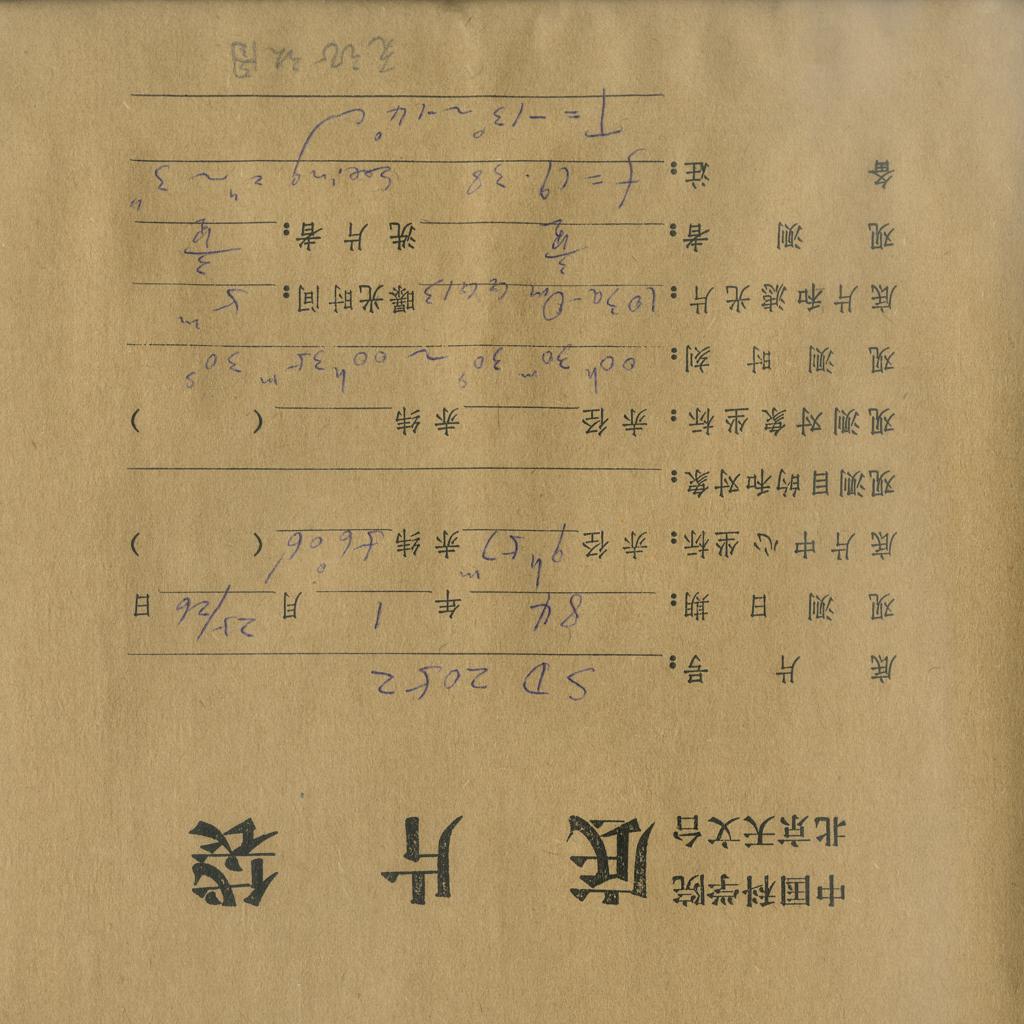 中国科学院 底片袋
北京天文台
底片号: SD 2052
观测日期: 84 年 1 月 25/26 日
底片中心坐标: 赤径 9h57m 赤纬 +6°06′ ( )
观测目的和对象:
观测对象坐标: 赤径 赤纬 ( )
观测时刻: 00h30m30s ~ 00h35m30s
底片和滤光片: 103a-O GG13 曝光时间: 5m
观测者: 洗片者:
备注: f=19.38 Seeing 2″~3″
T=-13°~-14°C